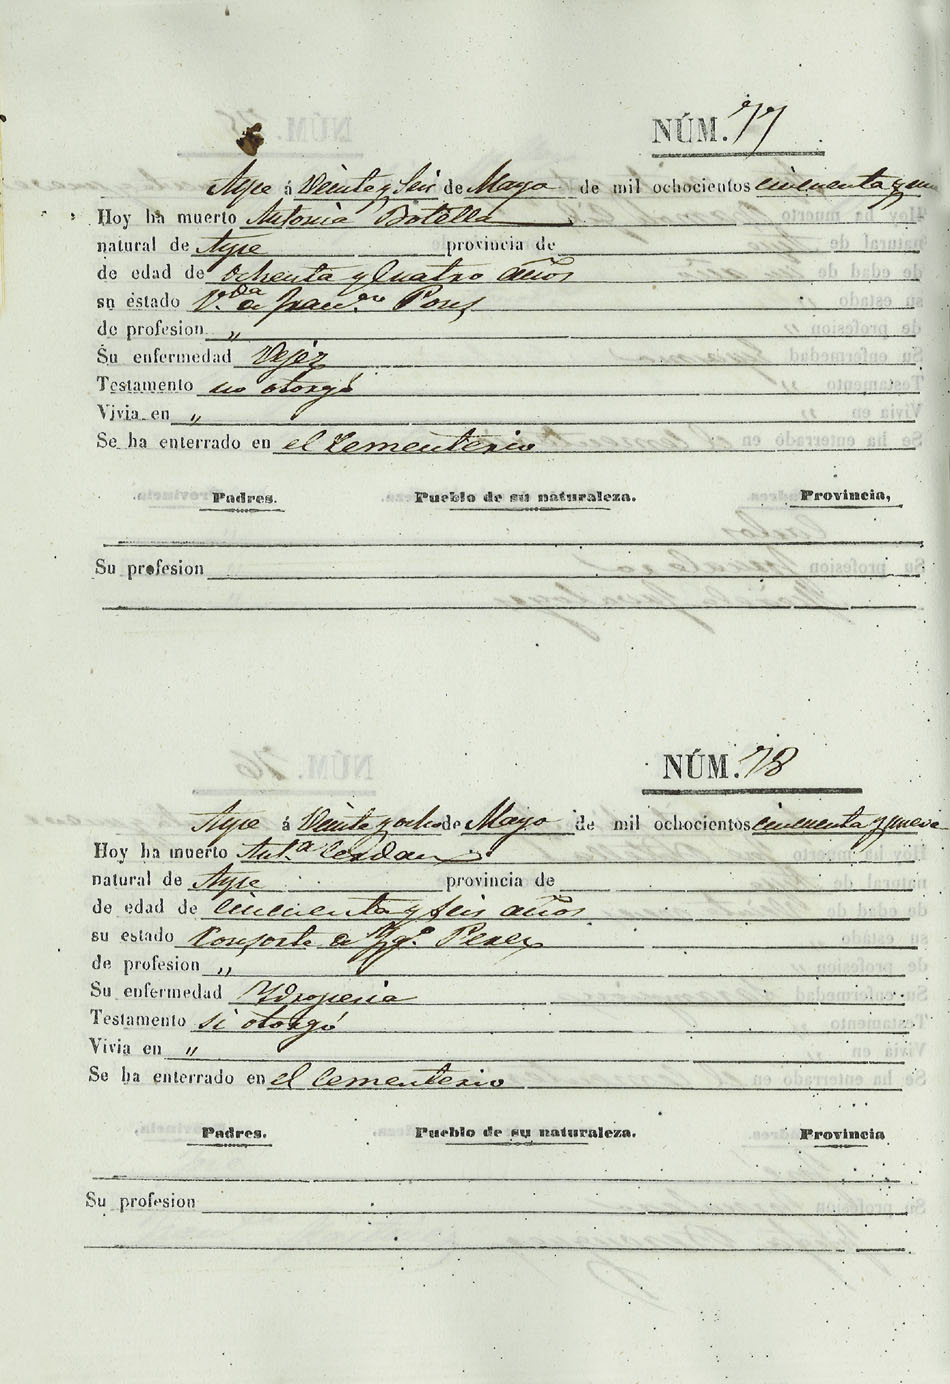 NÚM. 77
Aspe á Veinte y Seis de Mayo de mil ochocientos cincuenta y nue
Hoy ha muerto Antonia Botella
natural de Aspe provincia de
de edad de ochenta y Cuatro años
su estado V.da de Fran.co Pons
de profesion „
Su enfermedad Vejez
Testamento no otorgó
Vivia en „
Se ha enterrado en el Cementerio
Padres. Pueblo de su naturaleza. Provincia,
Su profesion
NÚM. 78
Aspe á Veinte y ocho de Mayo de mil ochocientos cincuenta y nueve
Hoy ha muerto Ant.a Cerdan
natural de Aspe provincia de
de edad de cincuenta y seis años
su estado Consorte de Perez
de profesion „
Su enfermedad Ydropesia
Testamento si otorgó
Vivia en „
Se ha enterrado en el Cementerio
Padres. Pueblo de su naturaleza. Provincia
Su profesion